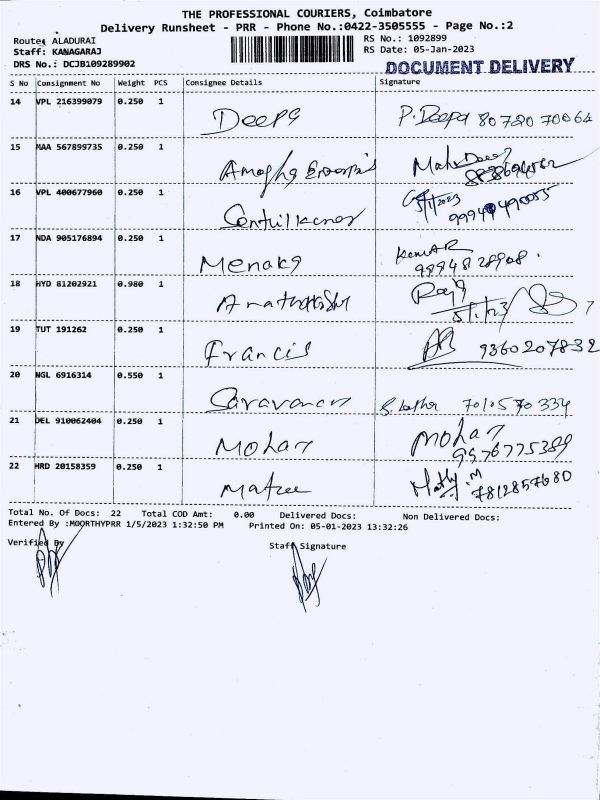 THE PROFESSIONAL COURIERS, Coimbatore
Delivery Runsheet - PRR - Phone No.:0422-3505555 - Page No.:2
Route: ALADURAI
RS No.: 1092899
Staff: KANAGARAJ
RS Date: 05-Jan-2023
DRS No.: DCJB109289902
DOCUMENT DELIVERY
S No Consignment No Weight PCS Consignee Details Signature
14 VPL 216399079 0.250 1 Deepa P. Deepa 80720 70064
15 MAA 567899735 0.250 1
16 VPL 400677960 0.250 1 5/1/2023
17 NDA 905176894 0.250 1 Menaka KumAR
18 HYD 81202921 0.980 1 5/1/23
19 TUT 191262 0.250 1 Francis 9360207832
20 NGL 6916314 0.550 1 Saravanan 7010570334
21 DEL 910062404 0.250 1 Mohan mohan
9976775389
22 HRD 20158359 0.250 1 7812857680
Total No. Of Docs: 22 Total COD Amt: 0.00 Delivered Docs: Non Delivered Docs:
Entered By :MOORTHYPRR 1/5/2023 1:32:50 PM Printed On: 05-01-2023 13:32:26
Verified By Staff Signature